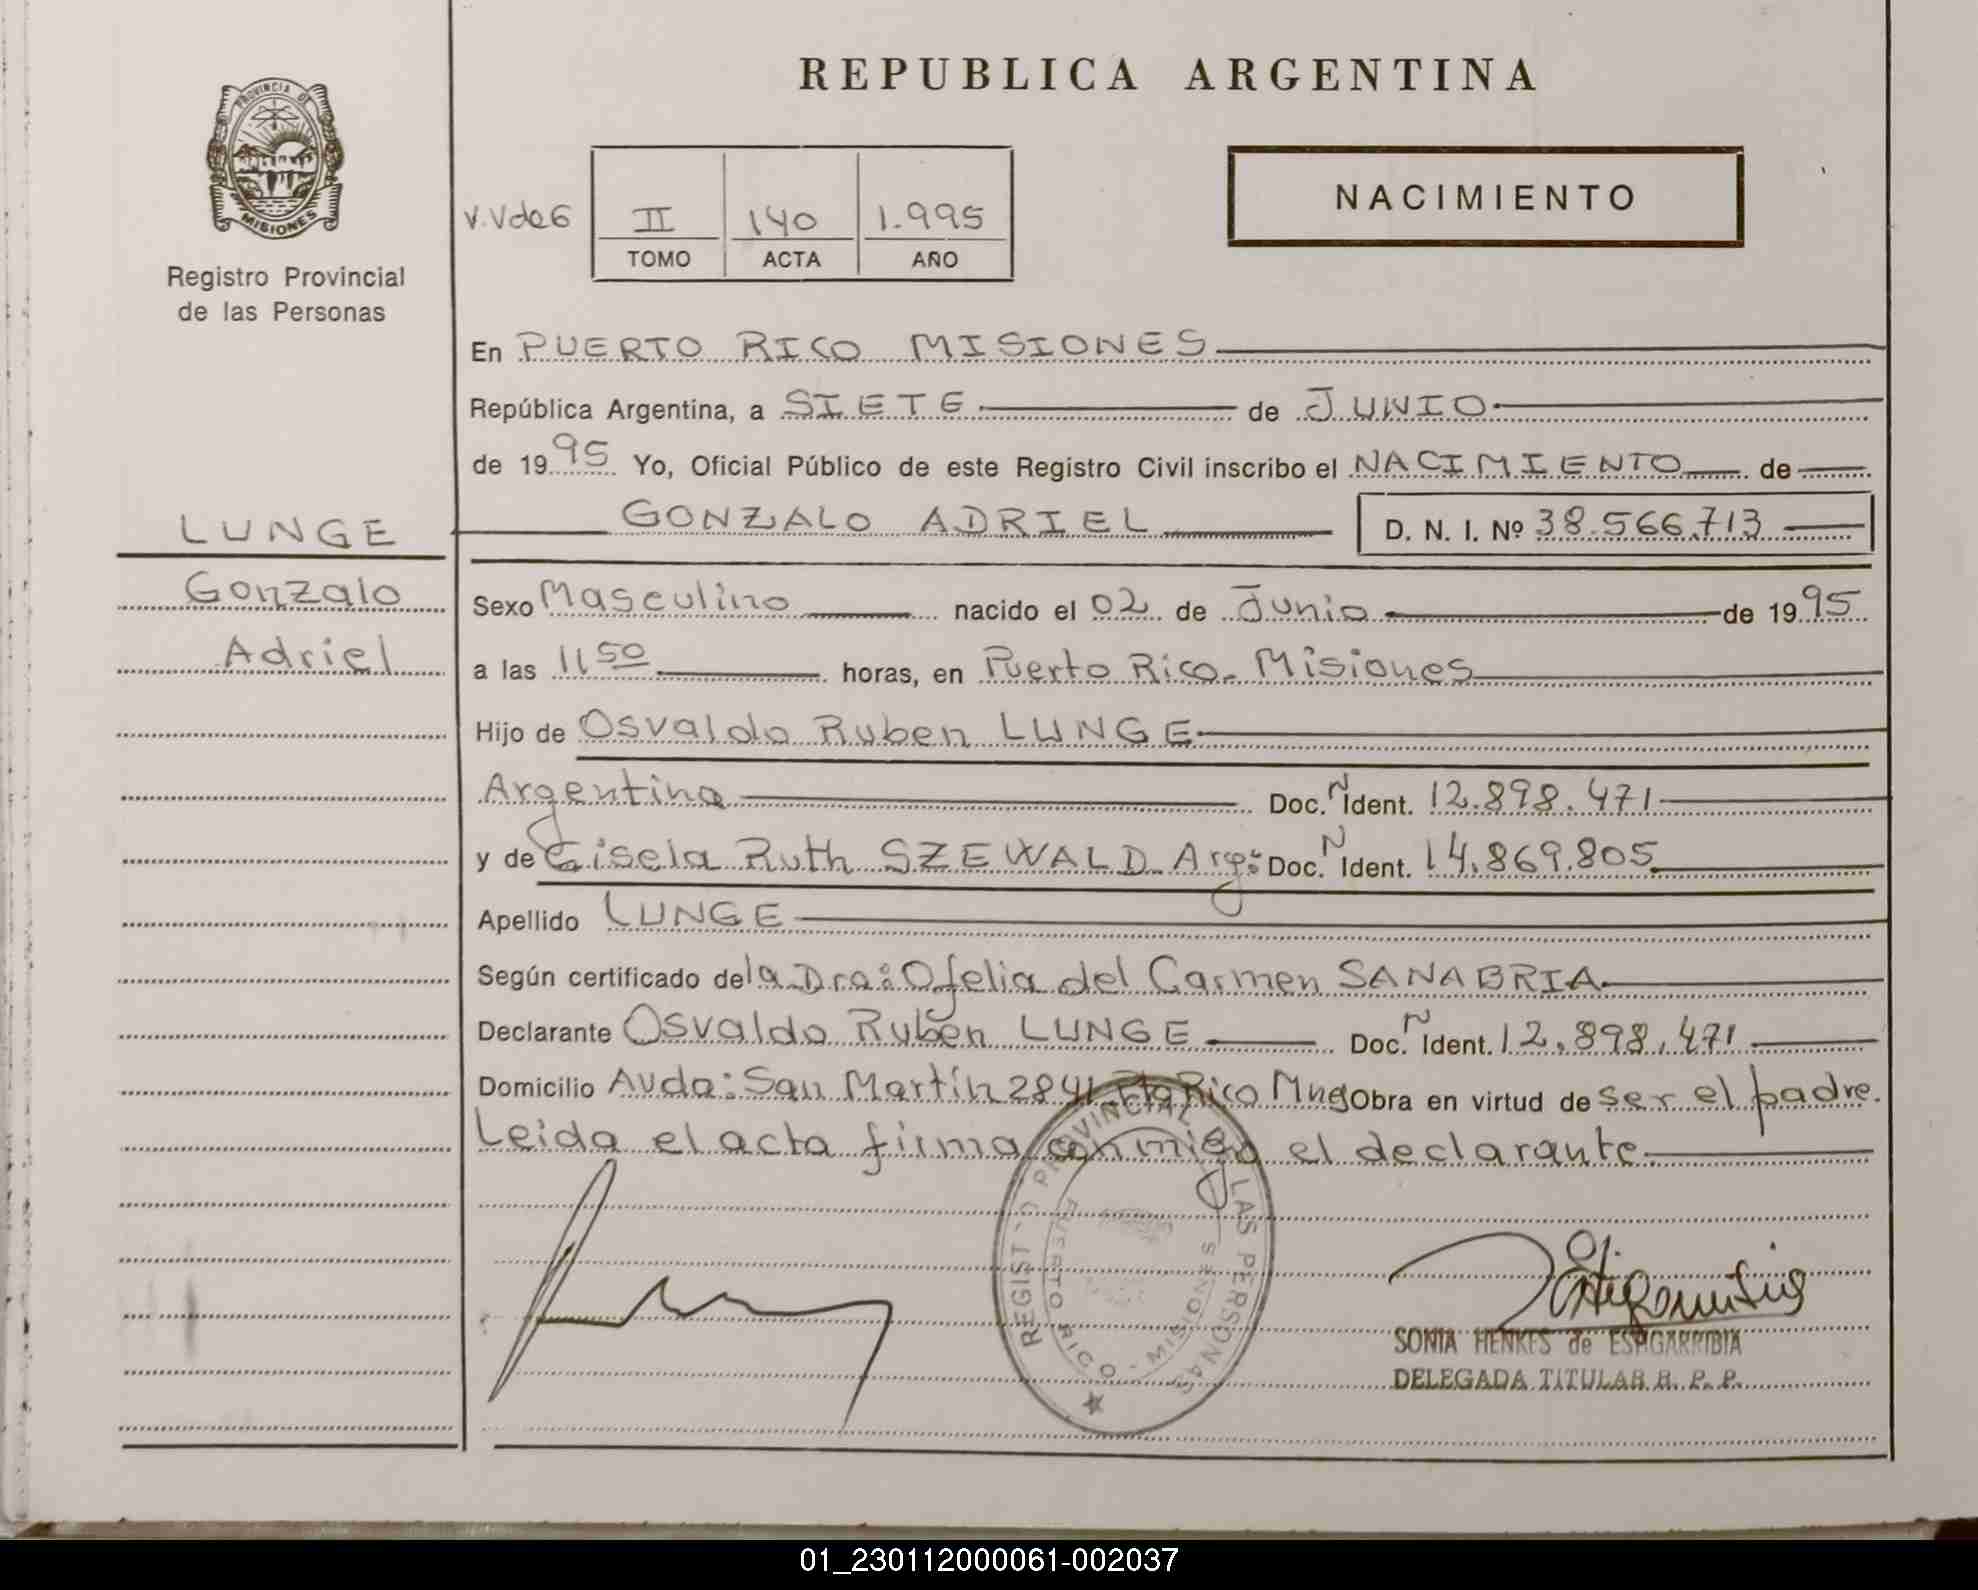 REPUBLICA ARGENTINA
PROVINCIA DE
MISIONES
Registro Provincial
de las Personas
V.Vde6
II 140 1.995
TOMO ACTA AÑO
NACIMIENTO
En PUERTO RICO MISIONES
República Argentina, a SIETE de JUNIO
de 1995 Yo, Oficial Público de este Registro Civil inscribo el NACIMIENTO de
GONZALO ADRIEL D. N. I. Nº 38.566.713
LUNGE
Gonzalo
Adriel
Sexo Masculino nacido el 02 de Junio de 1995
a las 11 50 horas, en Puerto Rico. Misiones
Hijo de Osvaldo Ruben LUNGE
Argentina Doc. N Ident. 12.898.471
y de Gisela Ruth SZEWALD Arg: Doc. N Ident. 14.869.805
Apellido LUNGE
Según certificado de la Dra: Ofelia del Carmen SANABRIA
Declarante Osvaldo Ruben LUNGE Doc. N Ident. 12.898.471
Domicilio Avda: San Martín 2841 Pto Rico Mnes Obra en virtud de ser el padre.
Leida el acta firma conmigo el declarante
REGISTRO PROVINCIAL DE LAS PERSONAS
PUERTO RICO - MISIONES
SONIA HENKES de ESPIGARRIBIA
DELEGADA TITULAR R. P. P.
01_230112000061-002037